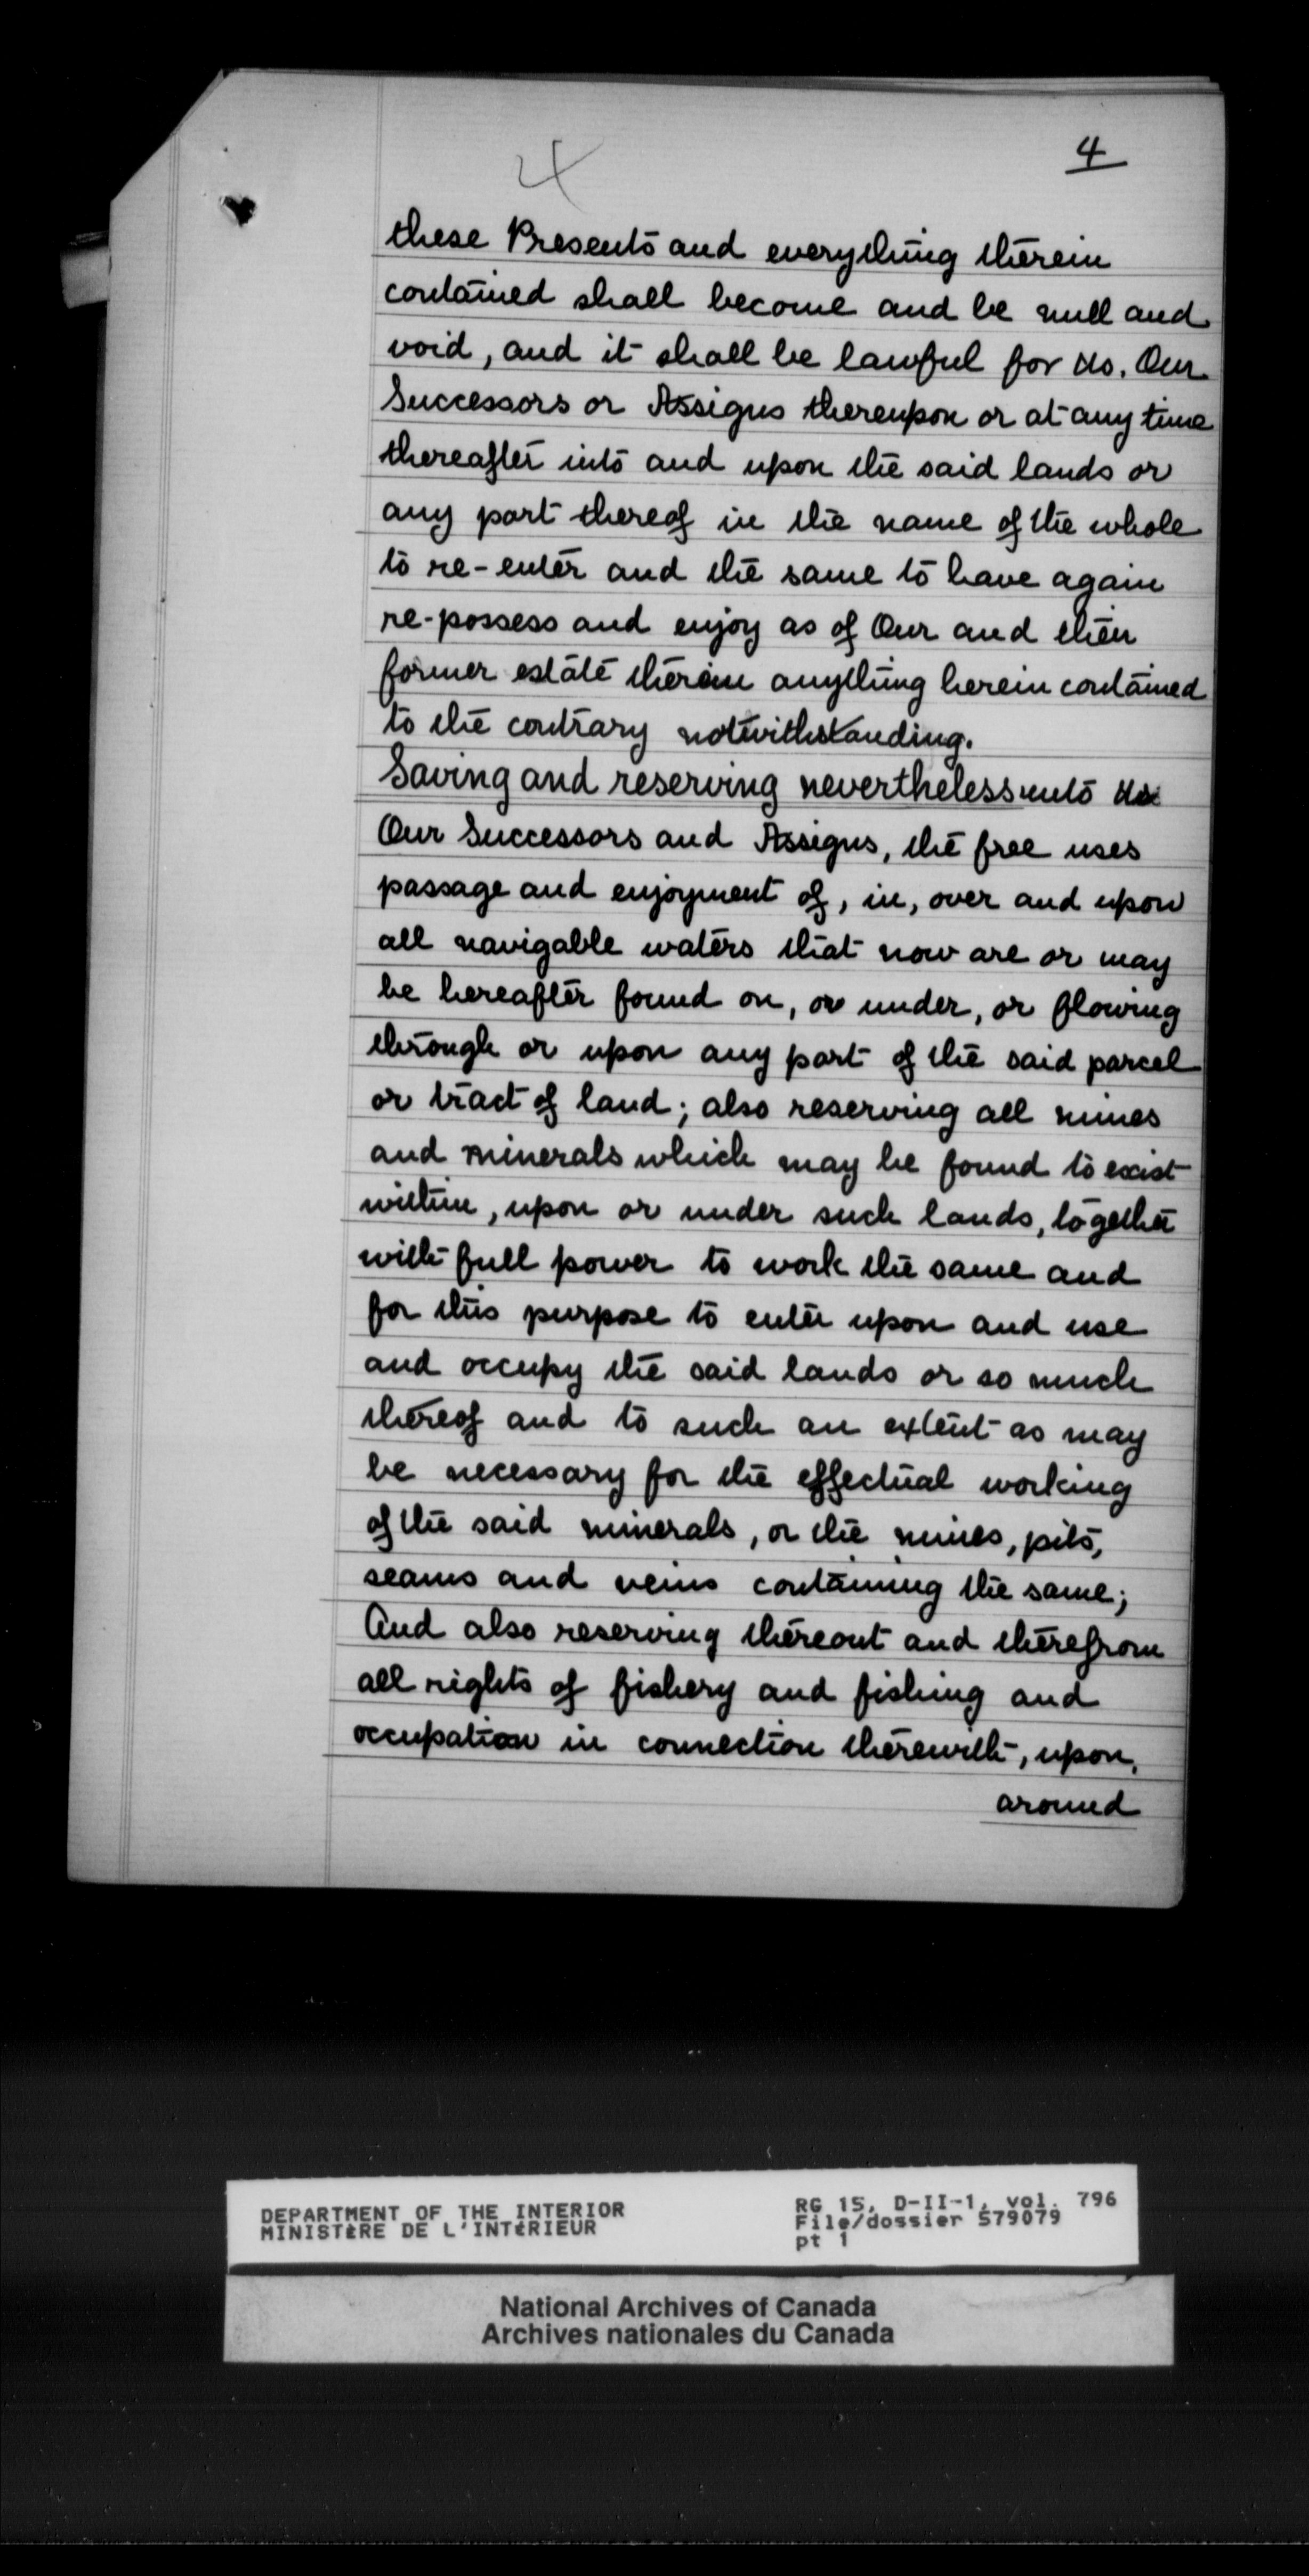 4
4
these Presents and everything therein
contained shall become and be null and
void, and it shall be lawful for Us, Our
Successors or Assigns thereupon or at any time
thereafter into and upon the said lands or
any part thereof in the name of the whole
to re-enter and the same to have again
re-possess and enjoy as of Our and their
former estate therein anything herein contained
to the contrary notwithstanding.
Saving and reserving nevertheless unto Us
Our Successors and Assigns, the free uses
passage and enjoyment of, in, over and upon
all navigable waters that now are or may
be hereafter found on, or under, or flowing
through or upon any part of the said parcel
or tract of land; also reserving all mines
and minerals which may be found to exist
within, upon or under such lands, together
with full power to work the same and
for this purpose to enter upon and use
and occupy the said lands or so much
thereof and to such an extent as may
be necessary for the effectual working
of the said minerals, or the mines, pits,
seams and veins containing the same;
And also reserving thereout and therefrom
all rights of fishery and fishing and
occupation in connection therewith, upon,
around
DEPARTMENT OF THE INTERIOR
MINISTÈRE DE L'INTÉRIEUR
RG 15, D-II-1, vol. 796
File/dossier 579079
pt 1
National Archives of Canada
Archives nationales du Canada